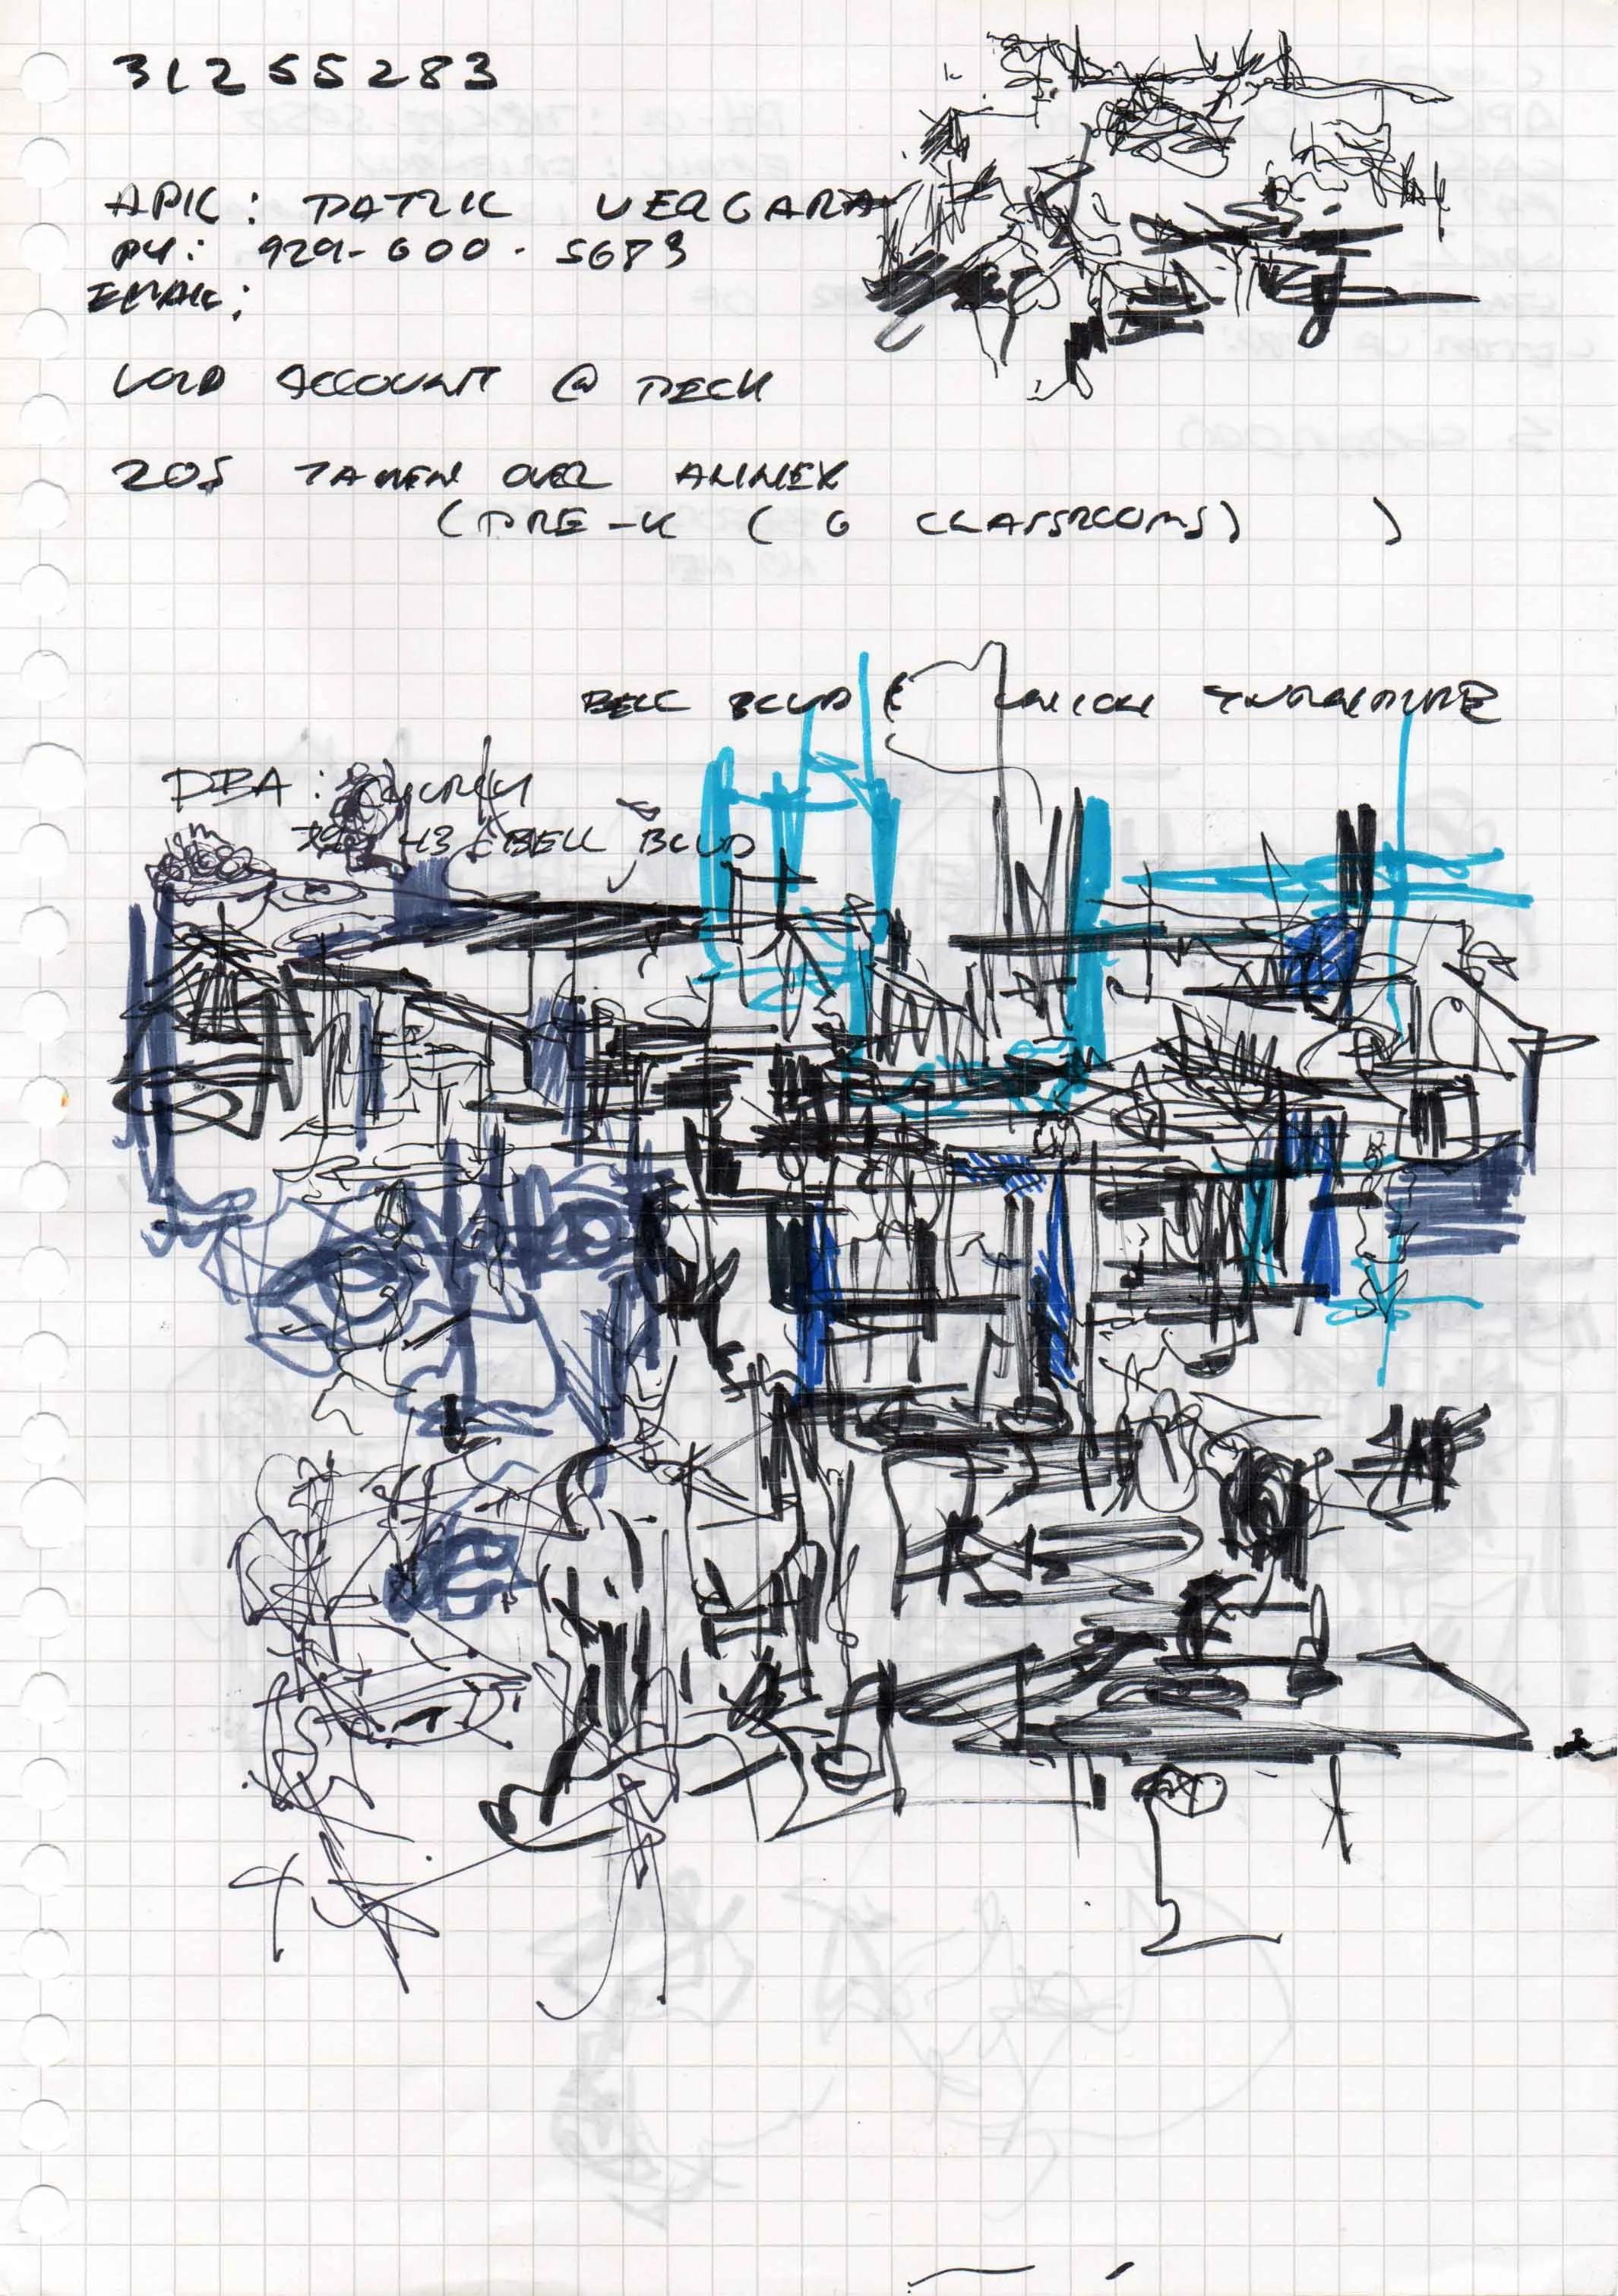 31255283
APIC: PATRIC VERGARA
PH: 929-600-5683
EMAIL:
ACCOUNT @ PECK
205 TAKEN OVER ANNEX
(PRE-K (6 CLASSROOMS) )
BELL BLVD & UNION TURNPIKE
DBA:
43 BELL BLVD